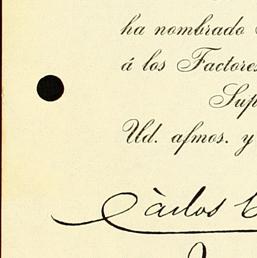 ha nombrado
á los Factores
Sup
Ud. afmos. y
Càrlos